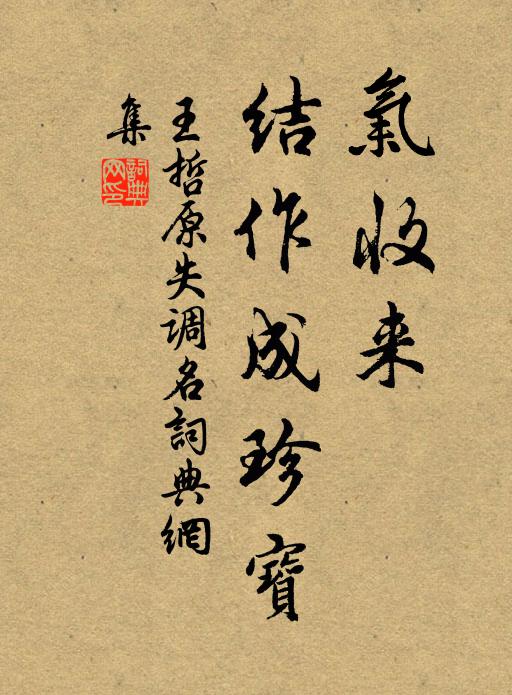 氣收来
結作成珍寶
王哲原失调名詞典網
集
詞典网印